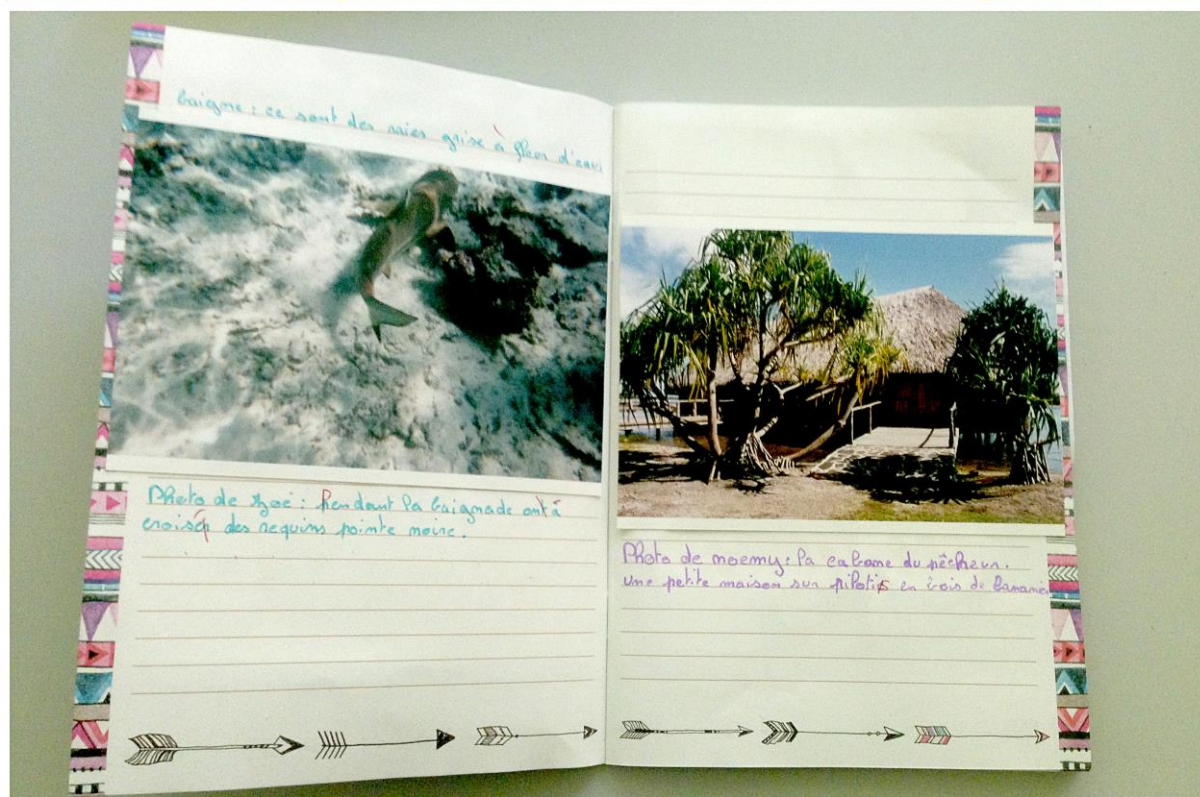 baigne : ce sont des raies grise à fleur d'eau
Photo de Zoé : Pendant la baignade ont à
croisé des requins pointe noire.
Photo de noemy : la cabane du pêcheur.
une petite maison sur pilotis en bois de bananier